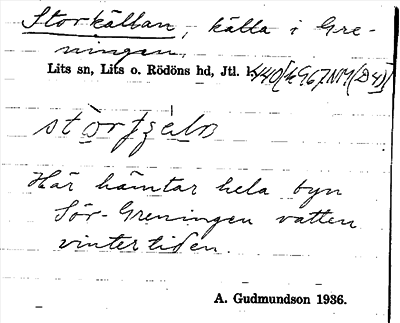 Storkällan, källa i Gre-
ningen.
Lits sn, Lits o. Rödöns hd, Jtl. l.
Här hämtar hela byn
Sör-Greningen vatten
vintertiden.
A. Gudmundson 1936.